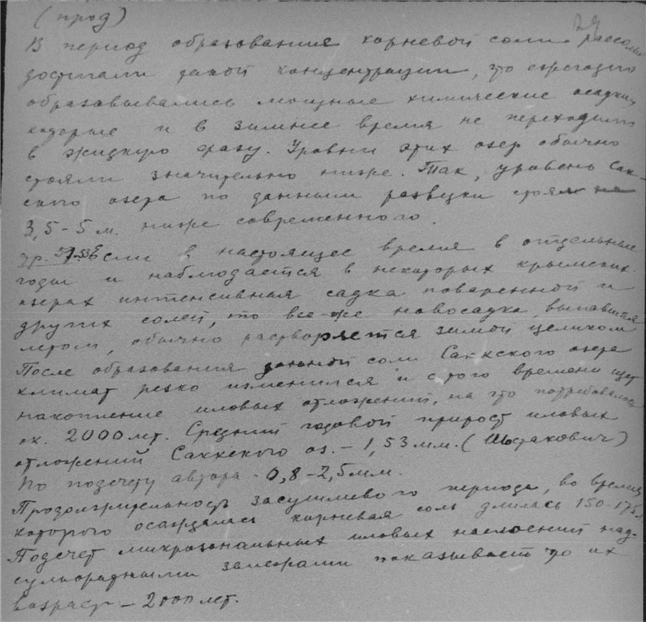 (прод)
29
В период образования корневой соли рассолы
достигали такой концентрации, что ежегодно
образовывались мощные химические осадки,
которые и в зимнее время не переходили
в жидкую фазу. Уровни этих озер обычно
стояли значительно ниже. Так, уровень Сак-
ского озера по данным разведки стоял на
3,5-5 м. ниже современного.
Если в настоящее время в отдельные
годы и наблюдается в некоторых крымских
озерах интенсивная садка поваренной и
других солей, то все-же новосадка, выпавшая
летом, обычно растворяется зимой целиком
После образования данной соли Сакского озера
климат резко изменился и с того времени идет
накопление иловых отложений, на что потребовалось
ок. 2000 лет. Средний годовой прирост иловых
отложений Сакского оз. – 1,53 мм. (Шостакович)
По подсчету автора - 0,8-2,5 мм.
Продолжительность засушливого периода, во время
которого осаждалась корневая соль длилась 150-175 л
Подсчет микрозональных иловых наслоений над
сульфатными залежами показывает что их
возраст – 2000 лет.